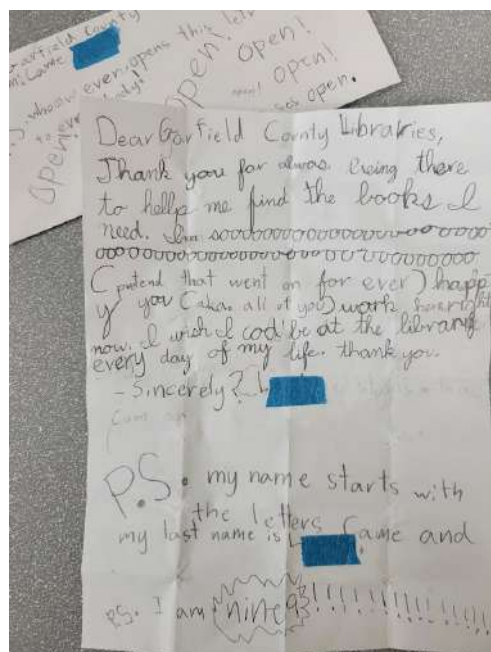 arfield County
Came
P.S. who ever opens this lett
to
every body!
open!
open!
open!
open!
open.
Dear Garfield County Libraries,
Thank you for alwas being there
to hellp me find the books I
need. Im soooooooooooooooooooooo
ooooooooooooooooooooooooooooooo
(pretend that went on for ever) happ
y you (aka. all of you) work here right
now. I wish I cod be at the library
every day of my life. thank you.
- Sincerely?
P.S. my name starts with
the letters Came and
my last name is
P.S. I am nine 9!!!!!!!!!!!!!!